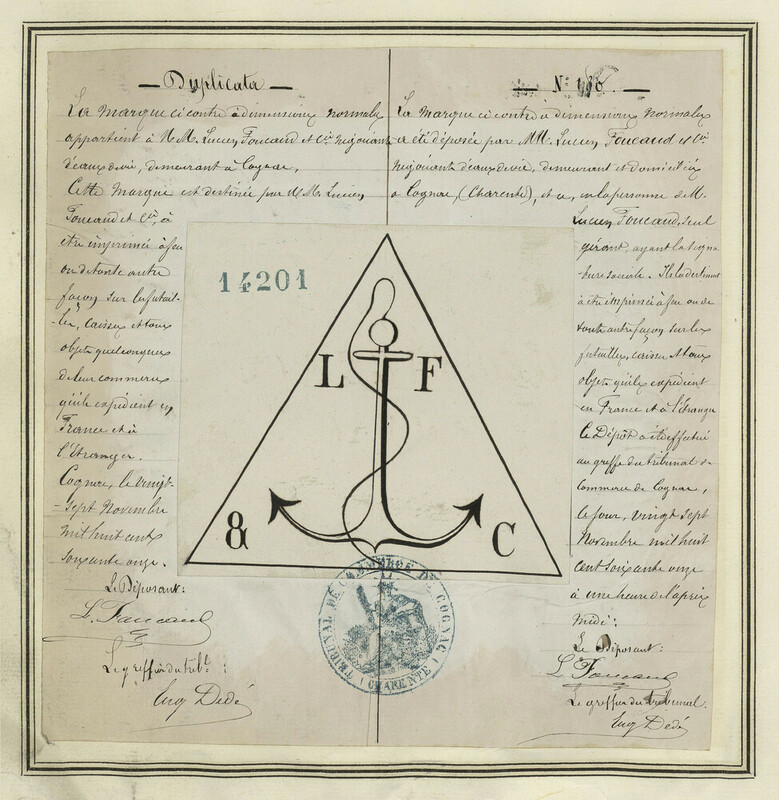 Duplicata
La marque ci contre à dimensions normales
appartient à M.M. Lucien Foucaud et Cie négociants
d'eaux de vie, demeurant à Cognac,
Cette marque est destinée par M.M. Lucien
Foucaud et Cie, à
être imprimée à feu
ou de toute autre
façon sur les futail-
les, caisses et tous
objets quelconques
de leur commerce
qu'ils expédient en
France et à
l'Etranger.
Cognac, le vingt-
sept Novembre
mil huit cent
soixante onze.
Le Déposant:
L. Foucaud
Le greffier du trib.l:
Eug Dedé
N°
La marque ci contre à dimensions normales
a été déposée par MM. Lucien Foucaud et Cie
négociants d'eaux de vie, demeurant et domiciliés
à Cognac, (Charente), et a, en la personne de M.
Lucien Foucaud, seul
gérant, ayant la signa-
ture sociale. Ils la destinent
à être imprimée à feu ou de
toute autre façon sur les
futailles, caisses et tous
objets qu'ils expédient
en France et à l'étranger
Ce Dépôt a été effectué
au greffe du tribunal de
Commerce de Cognac,
ce jour, vingt sept
Novembre mil huit
cent soixante onze
à une heure de l'après
midi:
Le Déposant:
L. Foucaud
Le greffier du tribunal.
Eug Dedé
14201
L F
& C
TRIBUNAL DE COMMERCE DE COGNAC
(CHARENTE)